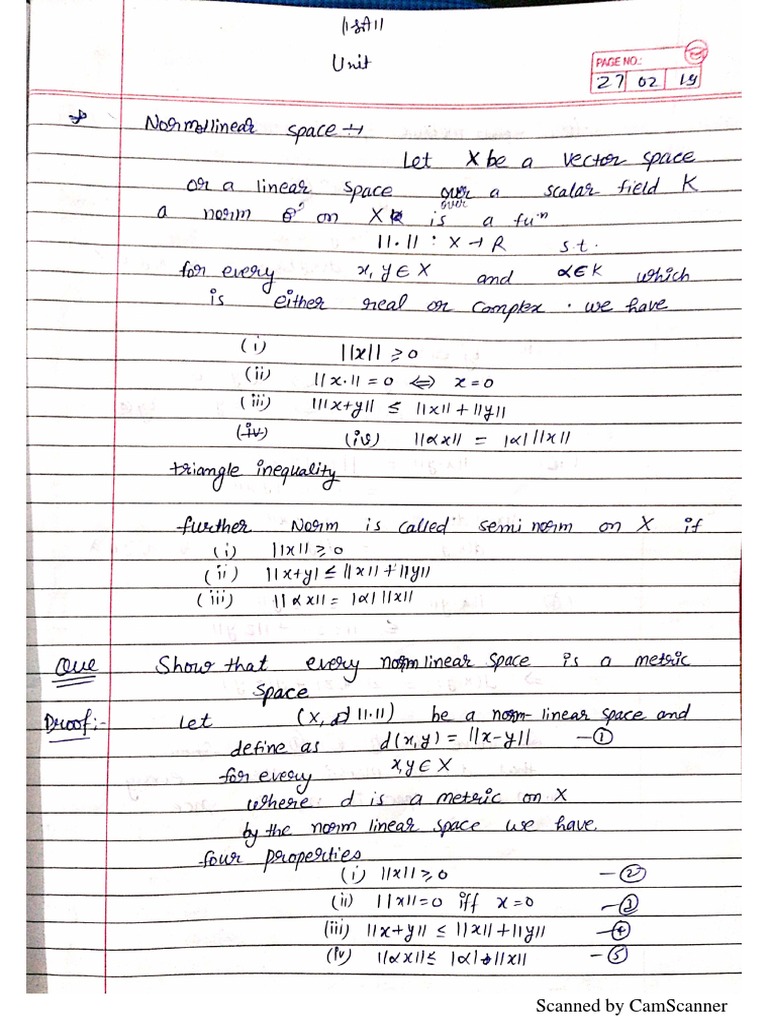 ॥श्री॥
Unit
PAGE NO.:
27 02 19
Normallinear space →
Let X be a vector space
or a linear space over a scalar field K
over
a norm on X is a fuⁿ
||.|| : X → R s.t.
for every x, y ∈ X and α ∈ K which
is either real or complex. we have
(i) ||x|| ≥ 0
(ii) ||x.|| = 0 ⇔ x = 0
(iii) |||x+y|| ≤ ||x|| + ||y||
(iv) (iv) ||αx|| = |α| ||x||
triangle inequality
further Norm is called semi norm on X if
(i) ||x|| ≥ 0
(ii) ||x+y| ≤ ||x|| + ||y||
(iii) ||αx|| = |α| ||x||
Que Show that every norm linear space is a metric
space
Proof:- Let (X, ||.||) be a norm-linear space and
define as d(x,y) = ||x-y|| -①
for every x,y ∈ X
where d is a metric on X
by the norm linear space we have.
four properties
(i) ||x|| ≥ 0 -②
(ii) ||x|| = 0 iff x = 0 -③
(iii) ||x+y|| ≤ ||x|| + ||y|| -④
(iv) ||αx|| ≤ |α| ||x|| -⑤
Scanned by CamScanner